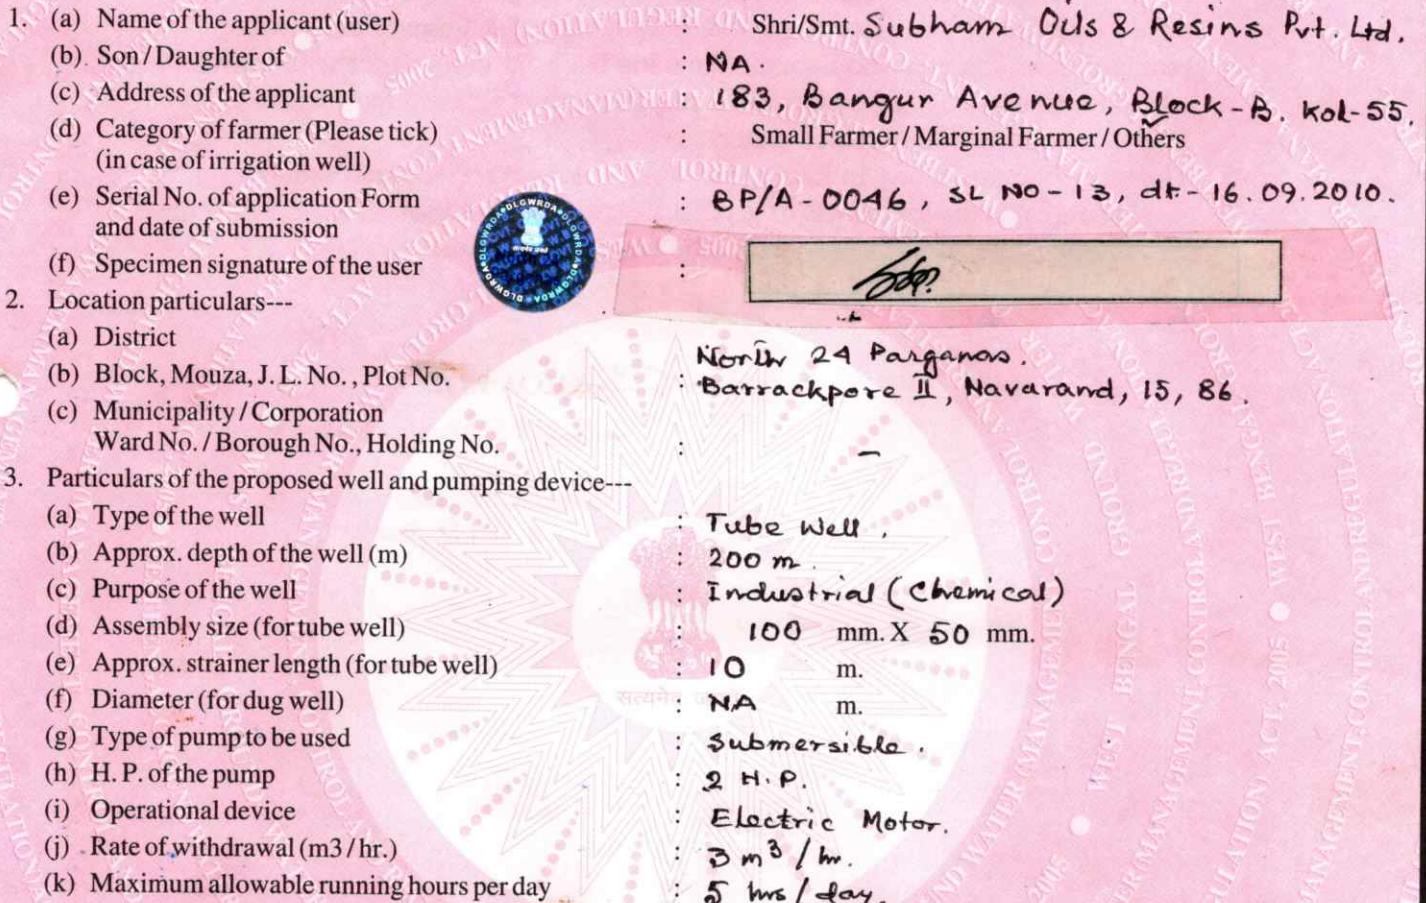 1. (a) Name of the applicant (user) : Shri/Smt. Subham Oils & Resins Pvt. Ltd.
(b) Son / Daughter of : NA.
(c) Address of the applicant : 183, Bangur Avenue, Block-B. Kol-55.
(d) Category of farmer (Please tick) : Small Farmer / Marginal Farmer / Others
(in case of irrigation well)
(e) Serial No. of application Form : BP/A-0046, SL NO-13, dt-16.09.2010.
and date of submission
(f) Specimen signature of the user :
2. Location particulars---
(a) District North 24 Parganas.
(b) Block, Mouza, J. L. No. , Plot No. : Barrackpore II, Navarand, 15, 86.
(c) Municipality / Corporation
Ward No. / Borough No., Holding No. : –
3. Particulars of the proposed well and pumping device---
(a) Type of the well : Tube Well.
(b) Approx. depth of the well (m) : 200 m.
(c) Purpose of the well : Industrial (Chemical)
(d) Assembly size (for tube well) : 100 mm. X 50 mm.
(e) Approx. strainer length (for tube well) : 10 m.
(f) Diameter (for dug well) : NA m.
(g) Type of pump to be used : Submersible.
(h) H. P. of the pump : 2 H.P.
(i) Operational device : Electric Motor.
(j) Rate of withdrawal (m3 / hr.) : 3 m³ / hr.
(k) Maximum allowable running hours per day : 5 hrs / day.